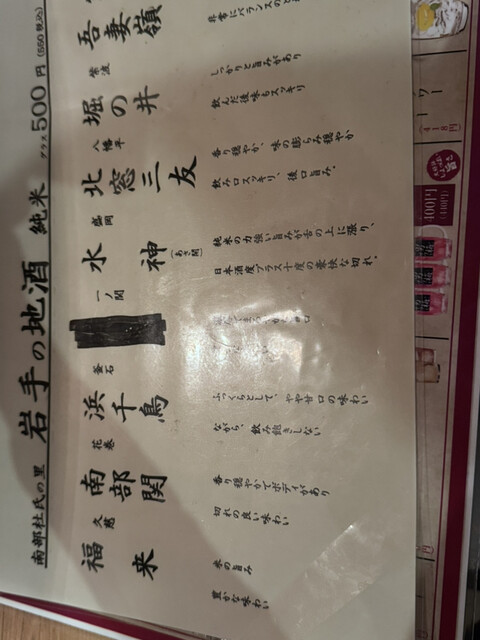 南部杜氏の里 岩手の地酒 純米 グラス500円(550税込)
吾妻嶺
非常にバランスの
紫波
堀の井
しっかりと旨みがあり
飲んだ後味もスッキリ
八幡平
北窓三友
香り穏やか、味の膨らみ穏やか
飲み口スッキリ、後口旨み。
盛岡
水神
(あさ開)
純米の力強い旨みが舌の上に漲り、
日本酒度プラス十度の豪快な切れ。
一ノ関
釜石
浜千鳥
ふっくらとして、やや甘口の味わい
ながら、飲み飽きしない
花巻
南部関
香り穏やかでボディがあり
切れの良い味わい
久慈
福来
米の旨み
豊かな味わい
400円
(440円)